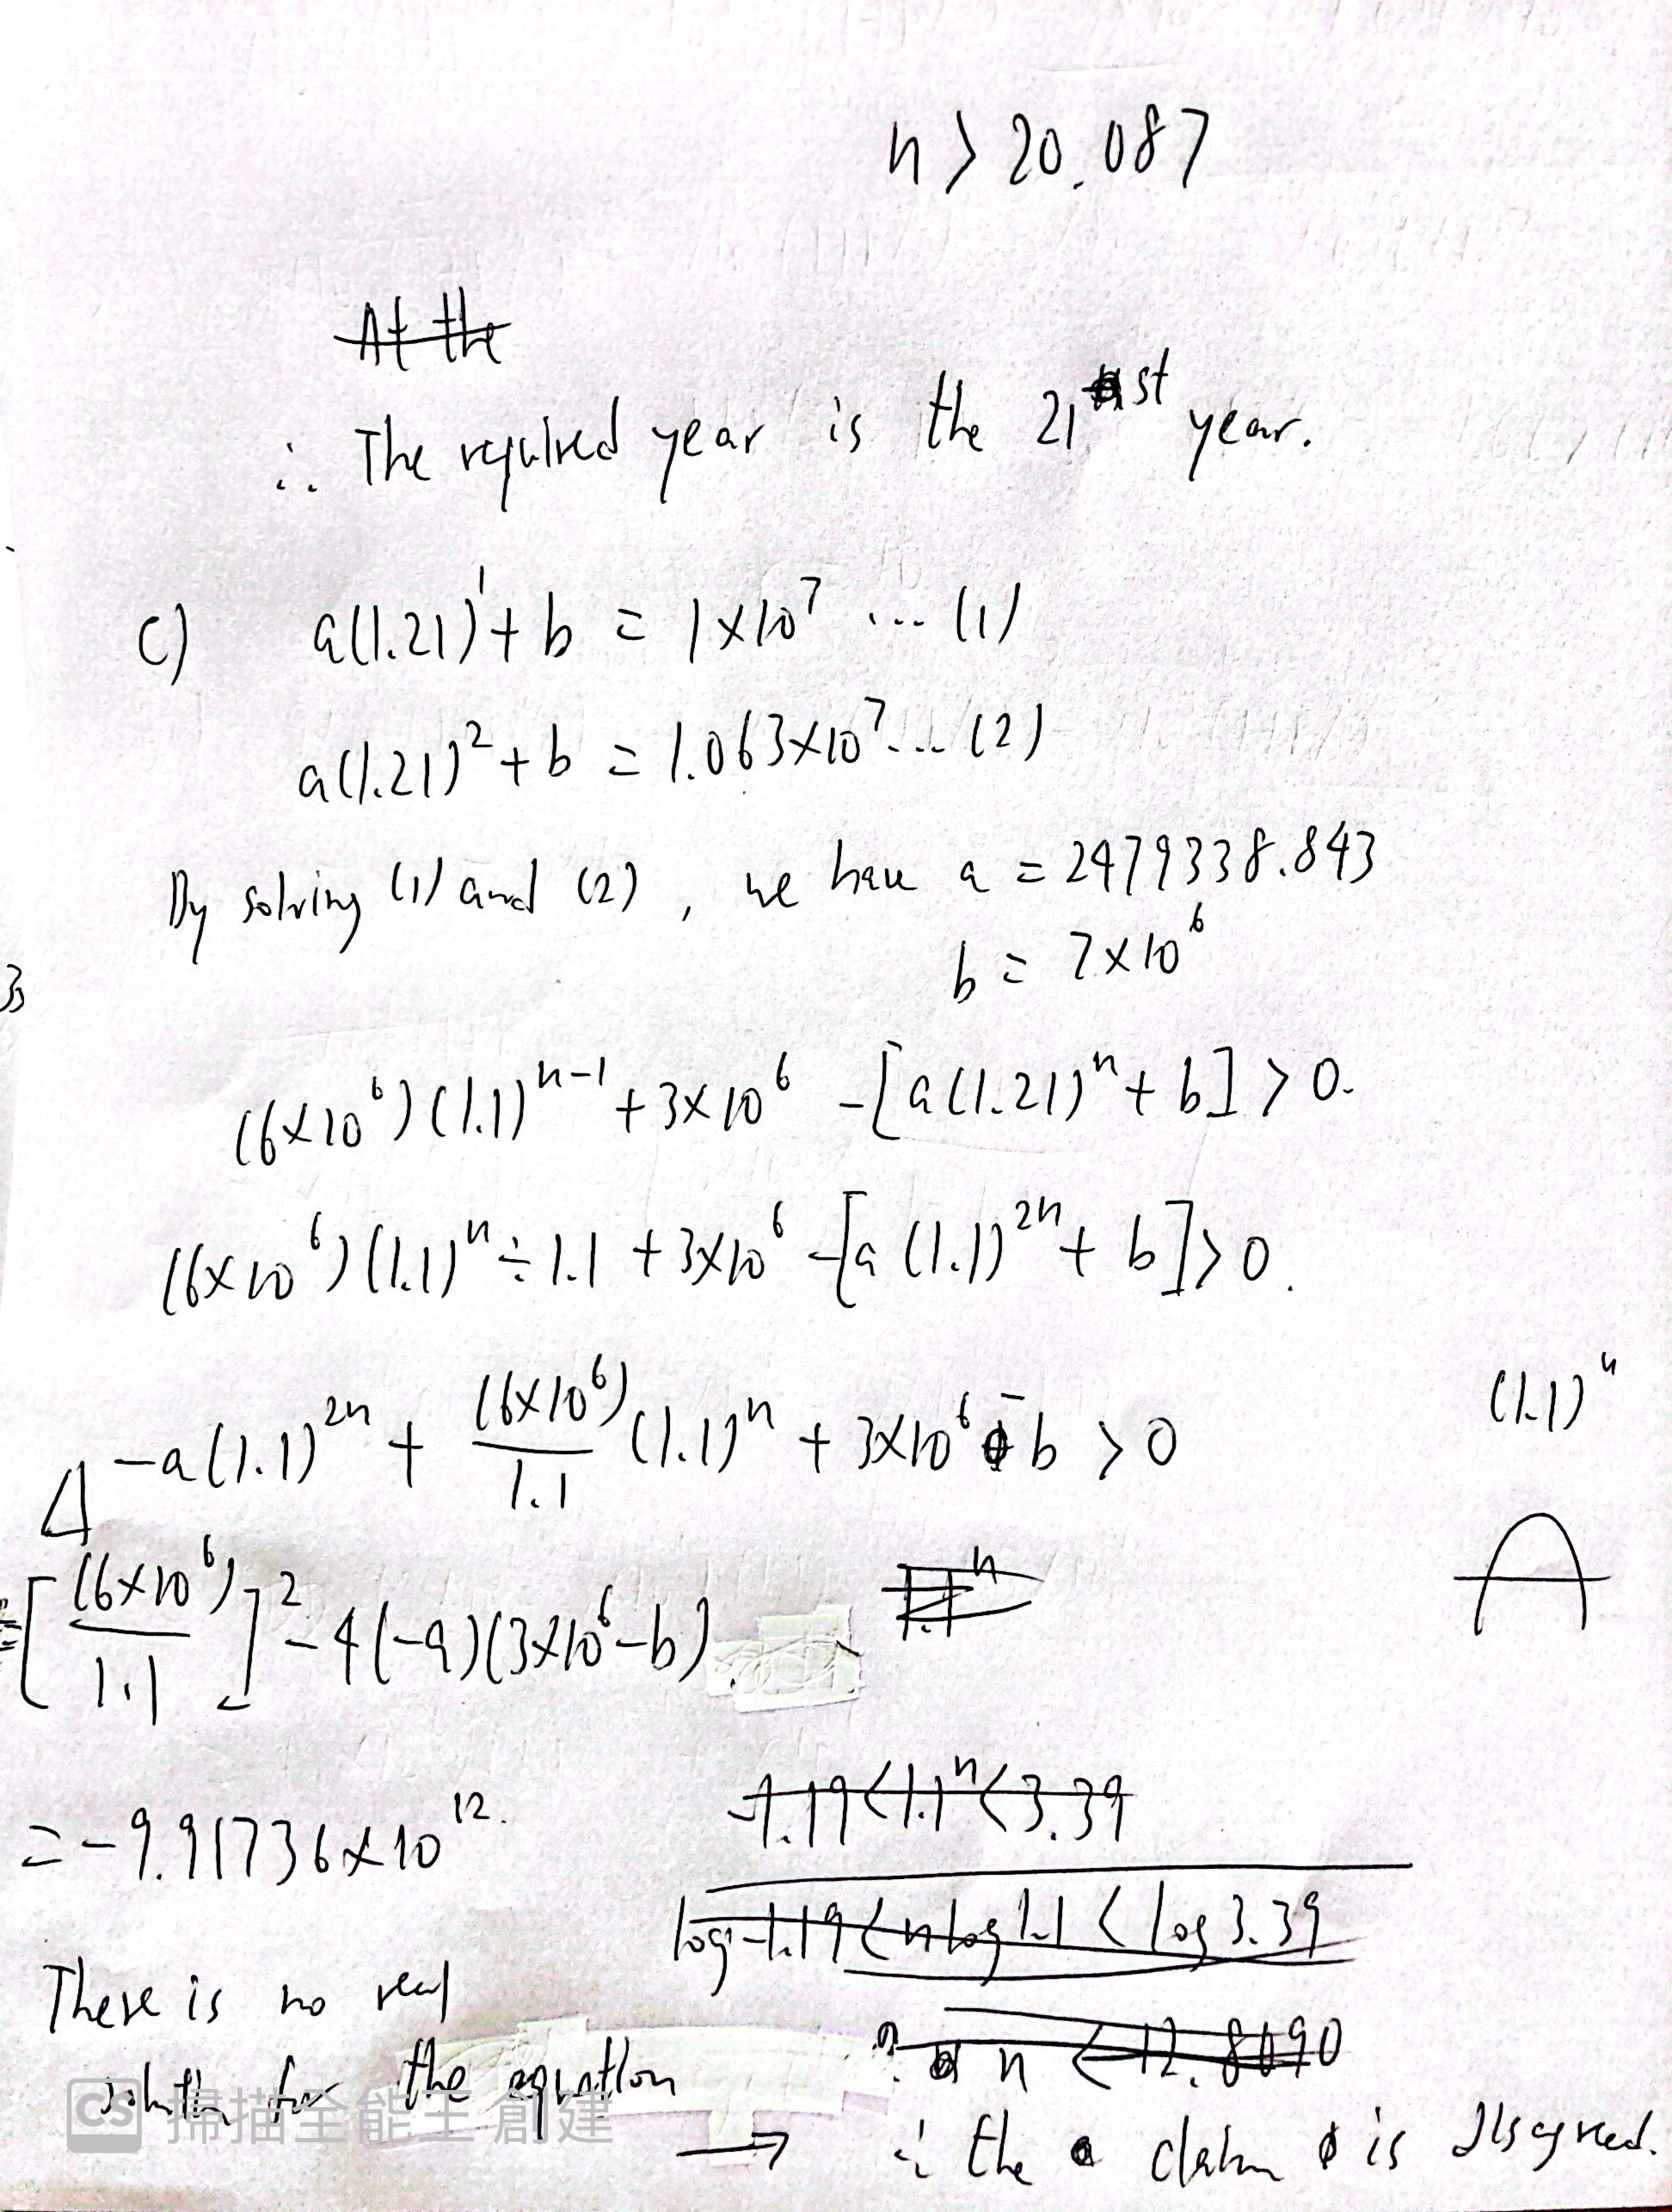 n > 20.087
At the
∴ The required year is the 21st year.
c) a(1.21)¹ + b = 1×10⁷ ... (1)
a(1.21)² + b = 1.063×10⁷ ... (2)
By solving (1) and (2), we have a = 2479338.843
b = 7×10⁶
(6×10⁶)(1.1)ⁿ⁻¹ + 3×10⁶ - [a(1.21)ⁿ + b] > 0.
(6×10⁶)(1.1)ⁿ ÷ 1.1 + 3×10⁶ - [a(1.1)²ⁿ + b] > 0.
-a(1.1)²ⁿ + (6×10⁶)/1.1 (1.1)ⁿ + 3×10⁶ - b > 0
(1.1)ⁿ
Δ
= [(6×10⁶)/1.1]² - 4(-a)(3×10⁶-b)
1.1ⁿ
= -9.91736×10¹².
-1.19<1.1ⁿ<3.39
log-1.19<nlog1.1<log3.39
n < 12.8090
There is no real
solution for the equation
→ ∴ the claim is disagreed.
CS 掃描全能王 創建